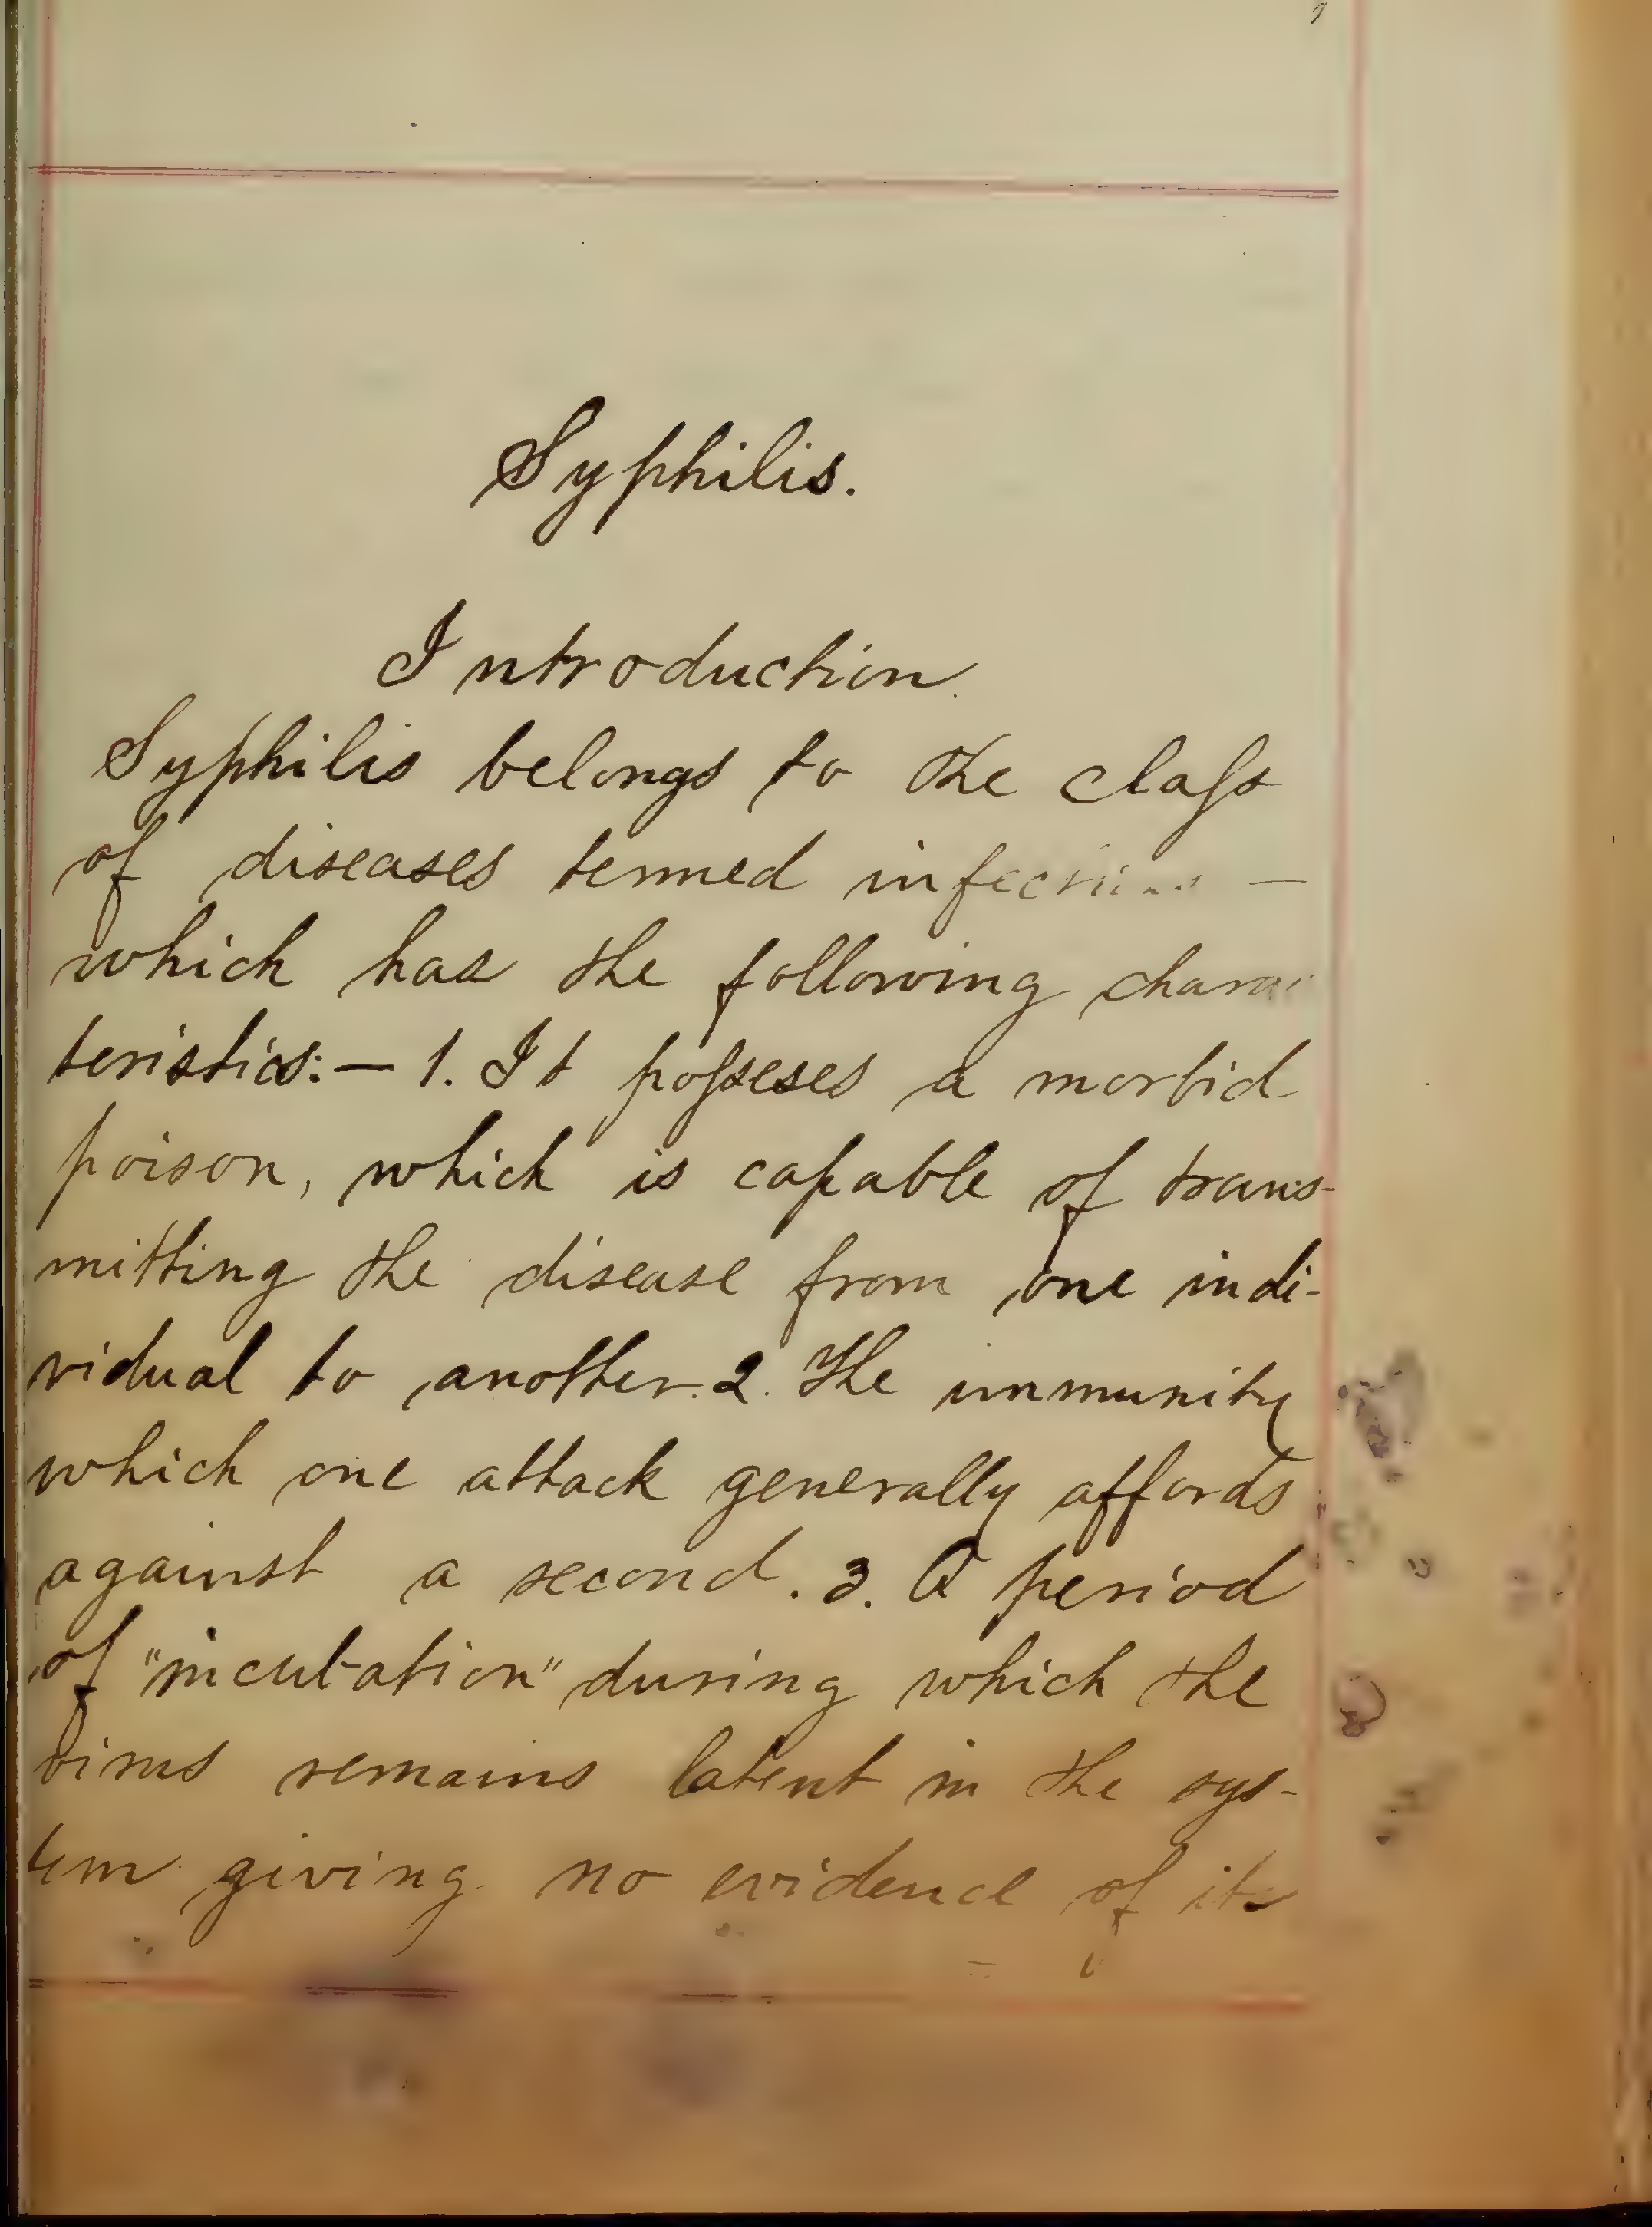 Syphilis.
Introduction.
Syphilis belongs to the claſs
of diseases termed infectious —
which has the following charac
teristics:— 1. It poſseses a morbid
poison, which is capable of trans-
mitting the disease from one indi-
vidual to another. 2. The immunity
which one attack generally affords
against a second. 3. A period
of "incubation" during which the
virus remains latent in the sys-
tem giving no evidence of its